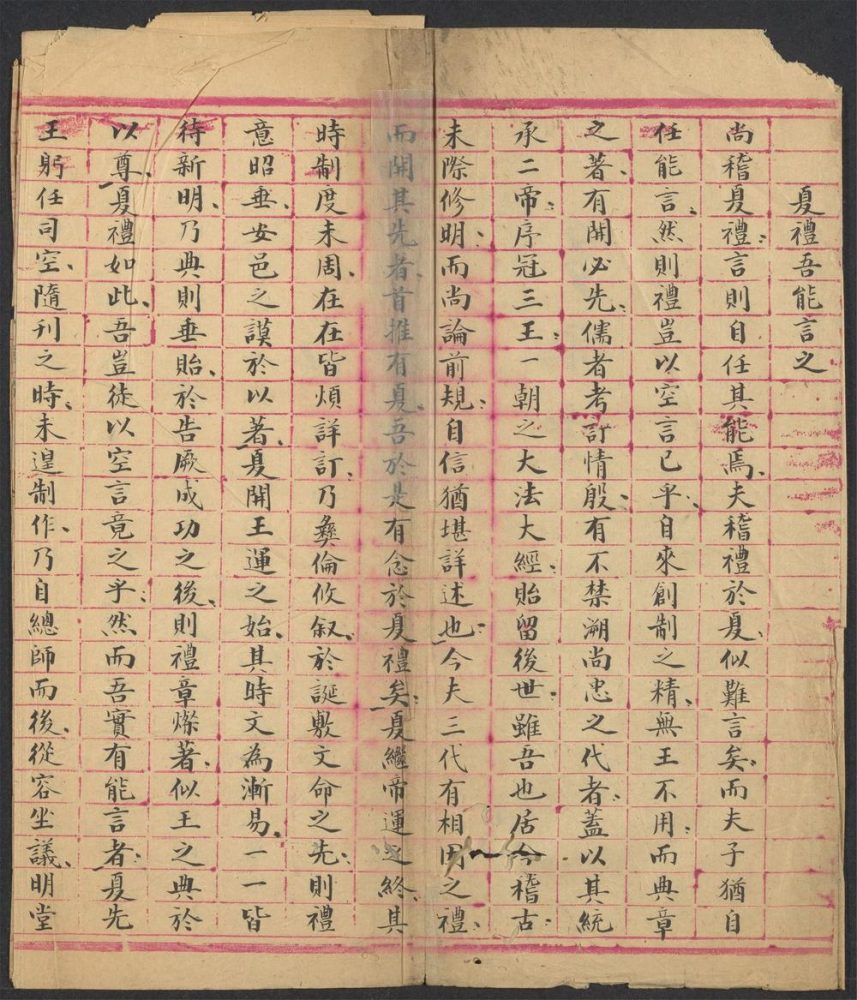 夏禮吾能言之
尚稽夏禮言則自任其能焉夫稽禮於夏似難言矣而夫子猶自
任能言然則禮豈以空言已乎自來創制之精無王不用而典章
之著有開必先儒者考訂情殷有不禁溯尚忠之代者蓋以其統
承二帝序冠三王一朝之大法大經貽留後世雖吾也居今稽古
未際修明而尚論前規自信猶堪詳述也今夫三代有相因之禮
而開其先者首推有夏吾於是有念於夏禮矣夏繼帝運之終其
時制度未周在在皆煩詳訂乃彝倫攸叙於誕敷文命之先則禮
意昭垂安邑之謨於以著夏開王運之始其時文為漸易一一皆
待新明乃典則垂貽於告厥成功之後則禮章燦著似王之典於
以尊夏禮如此吾豈徒以空言竟之乎然而吾實有能言者夏先
王躬任司空隨刊之時未遑制作乃自總師而後從容坐議明堂